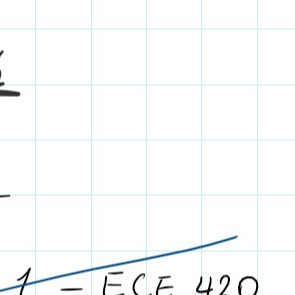 1 – ECE 420